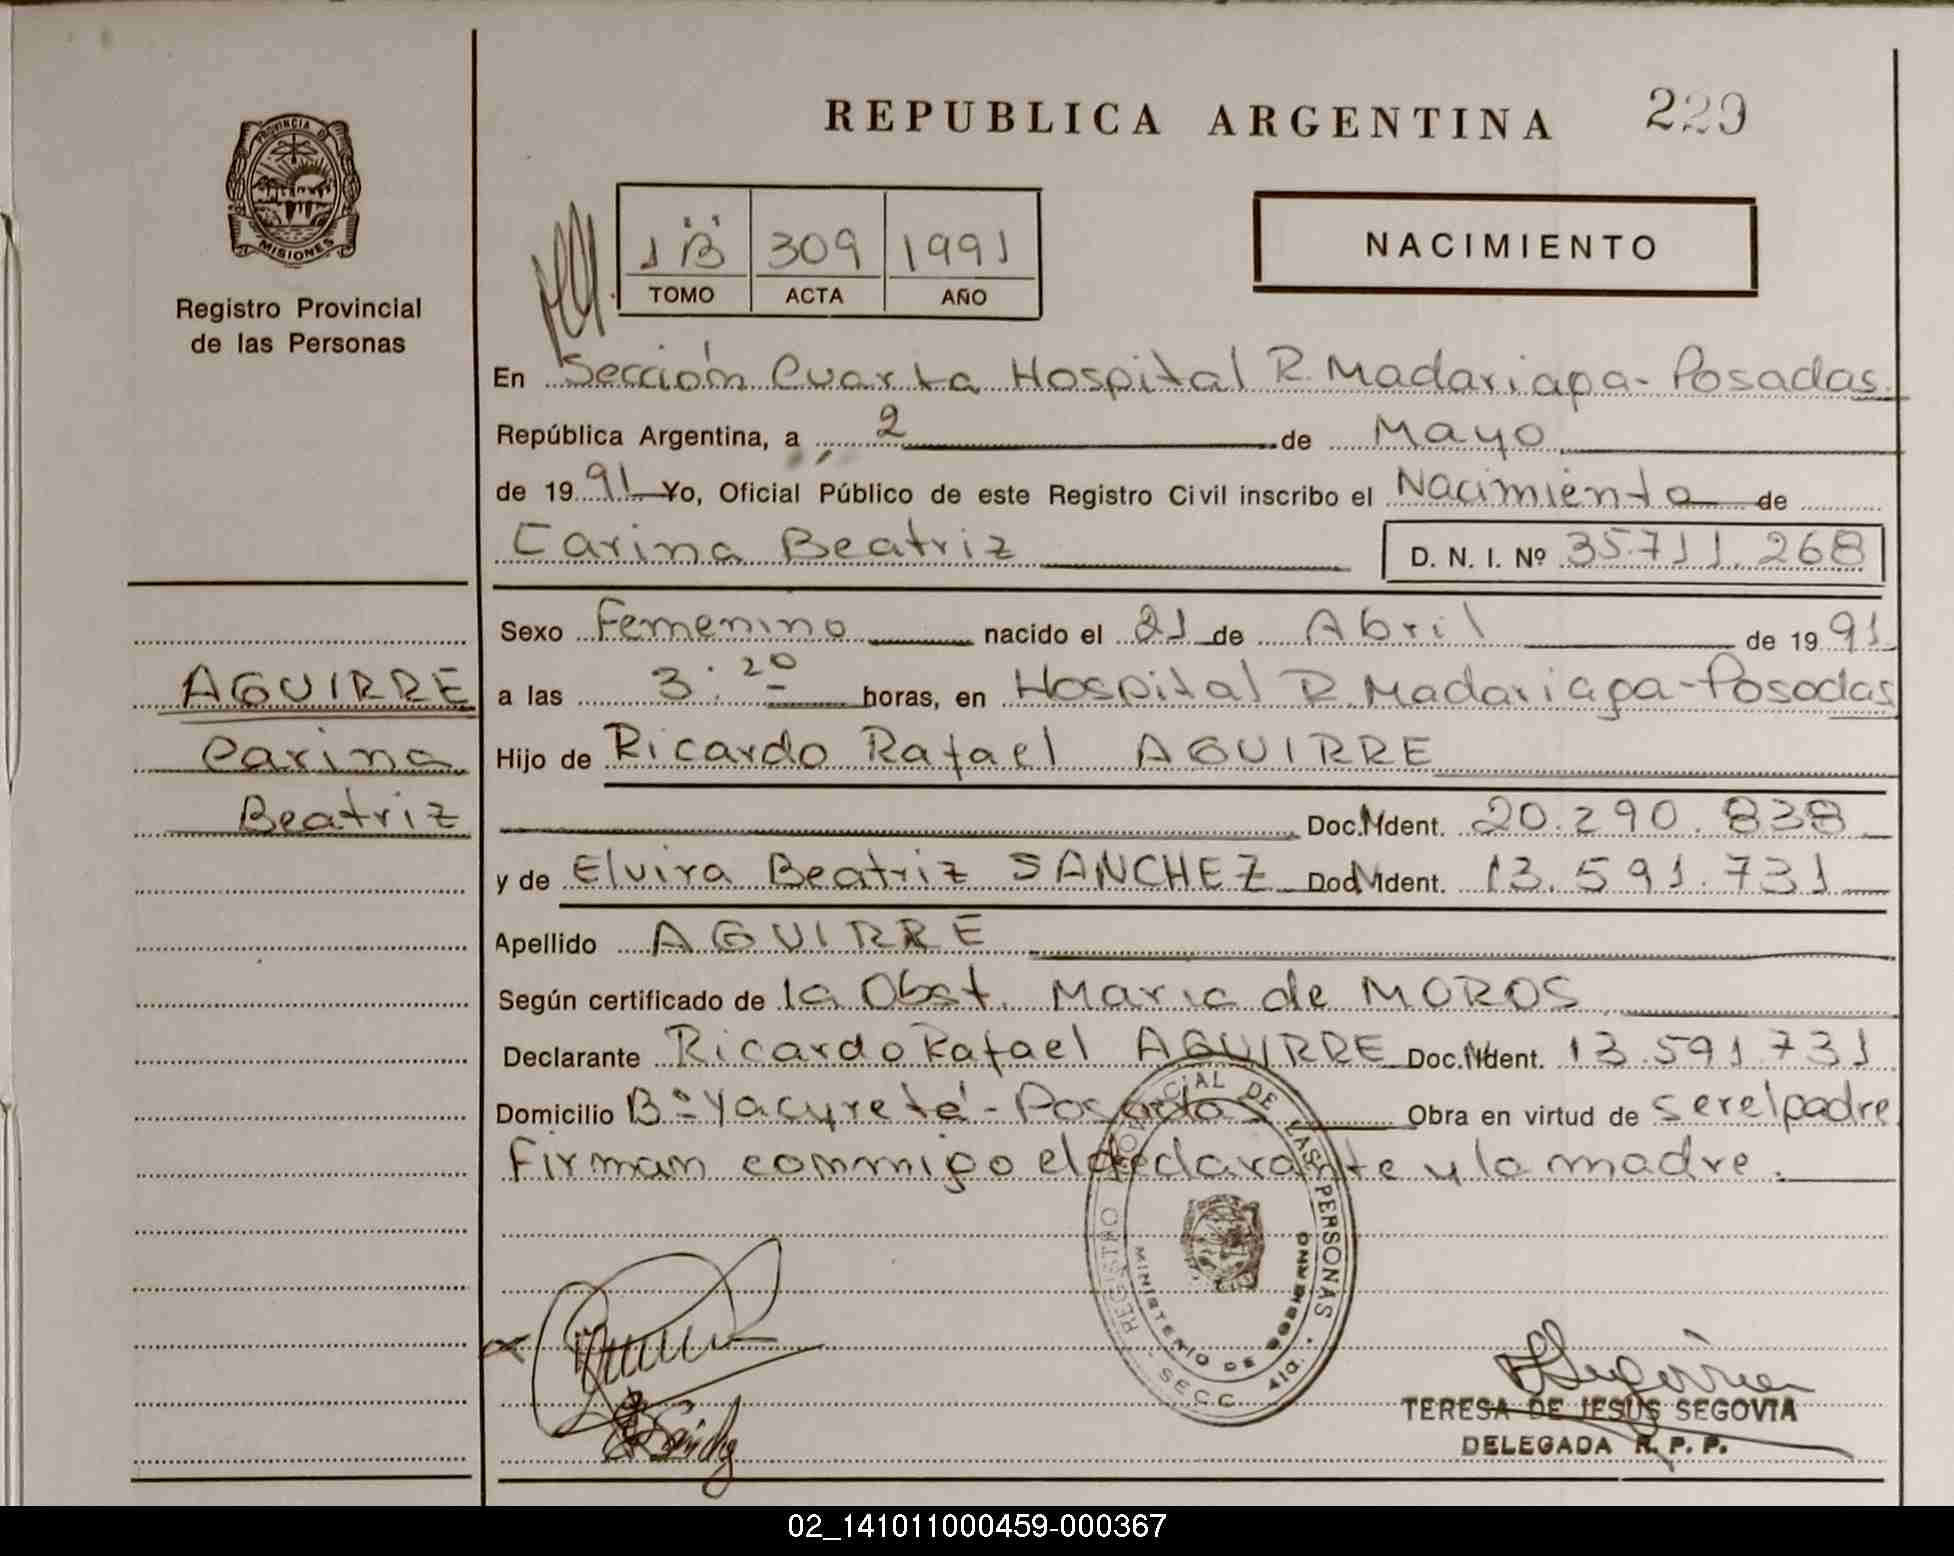 REPUBLICA ARGENTINA
229
PROVINCIA DE
MISIONES
Registro Provincial
de las Personas
1 "B" 309 1991
TOMO ACTA AÑO
NACIMIENTO
En Sección Cuarta Hospital R. Madariaga - Posadas
República Argentina, a 2 de Mayo
de 1991 Yo, Oficial Público de este Registro Civil inscribo el Nacimiento de
Carina Beatriz D. N. I. Nº 35.711.268
Sexo Femenino nacido el 21 de Abril de 1991
AGUIRRE
Carina
Beatriz
a las 3:20 horas, en Hospital R. Madariaga - Posadas
Hijo de Ricardo Rafael AGUIRRE
Doc. Ident. 20.290.838
y de Elvira Beatriz SANCHEZ Doc. Ident. 13.591.731
Apellido AGUIRRE
Según certificado de la Obst. Maria de MOROS
Declarante Ricardo Rafael AGUIRRE Doc. Ident. 13.591.731
Domicilio Bº Yacyretá - Posadas Obra en virtud de ser el padre
Firman conmigo el declarante y la madre.
REGISTRO PROVINCIAL DE LAS PERSONAS
MINISTERIO DE GOBIERNO
SECC. 4ta.
TERESA DE JESUS SEGOVIA
DELEGADA R. P. P.
02_141011000459-000367